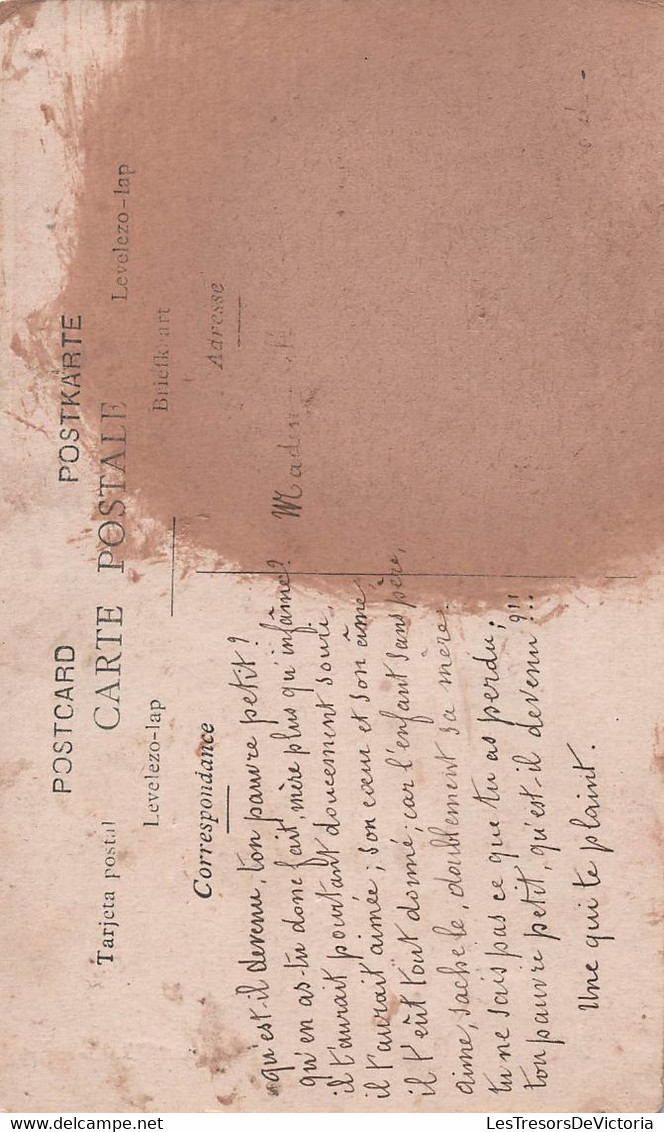 POSTCARD POSTKARTE
Tarjeta postal CARTE POSTALE Levelezo-lap
Levelezo-lap Briefkaart
Correspondance
Adresse
qu'est-il devenu, ton pauvre petit?
qu'en as-tu donc fait, mère plus qu'infâme?
il t'aurait pourtant doucement souri,
il t'aurait aimée; son cœur et son âme
il t'eût tout donné; car l'enfant sans père,
aime, sache le, doublement sa mère.
tu ne sais pas ce que tu as perdu;
ton pauvre petit, qu'est-il devenu?!!
Une qui te plaint.
LesTresorsDeVictoria